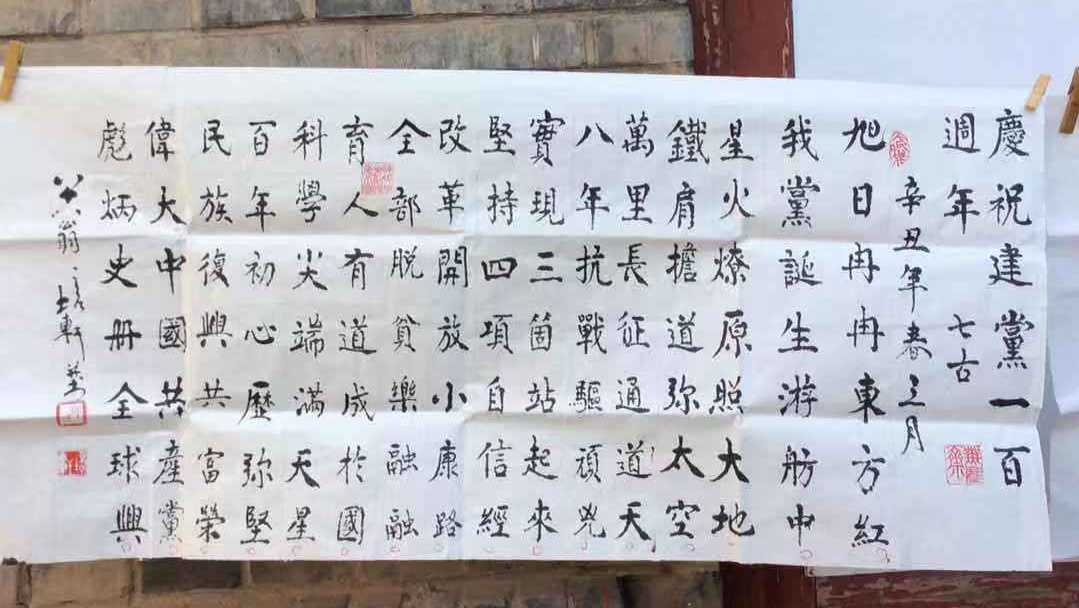 慶祝建黨一百
週年 七古
辛丑年春三月
旭日冉冉東方紅
我黨誕生游舫中
星火燎原照大地
鐵肩擔道弥太空
萬里長征通道天
八年抗戰驅頑兇
實現三箇站起來
堅持四項自信經
改革開放小康路
全部脱貧樂融融
育人有道成於國
科學尖端滿天星
百年初心歷弥堅
民族復興共富榮
偉大中國共產黨
彪炳史册全球興
翁